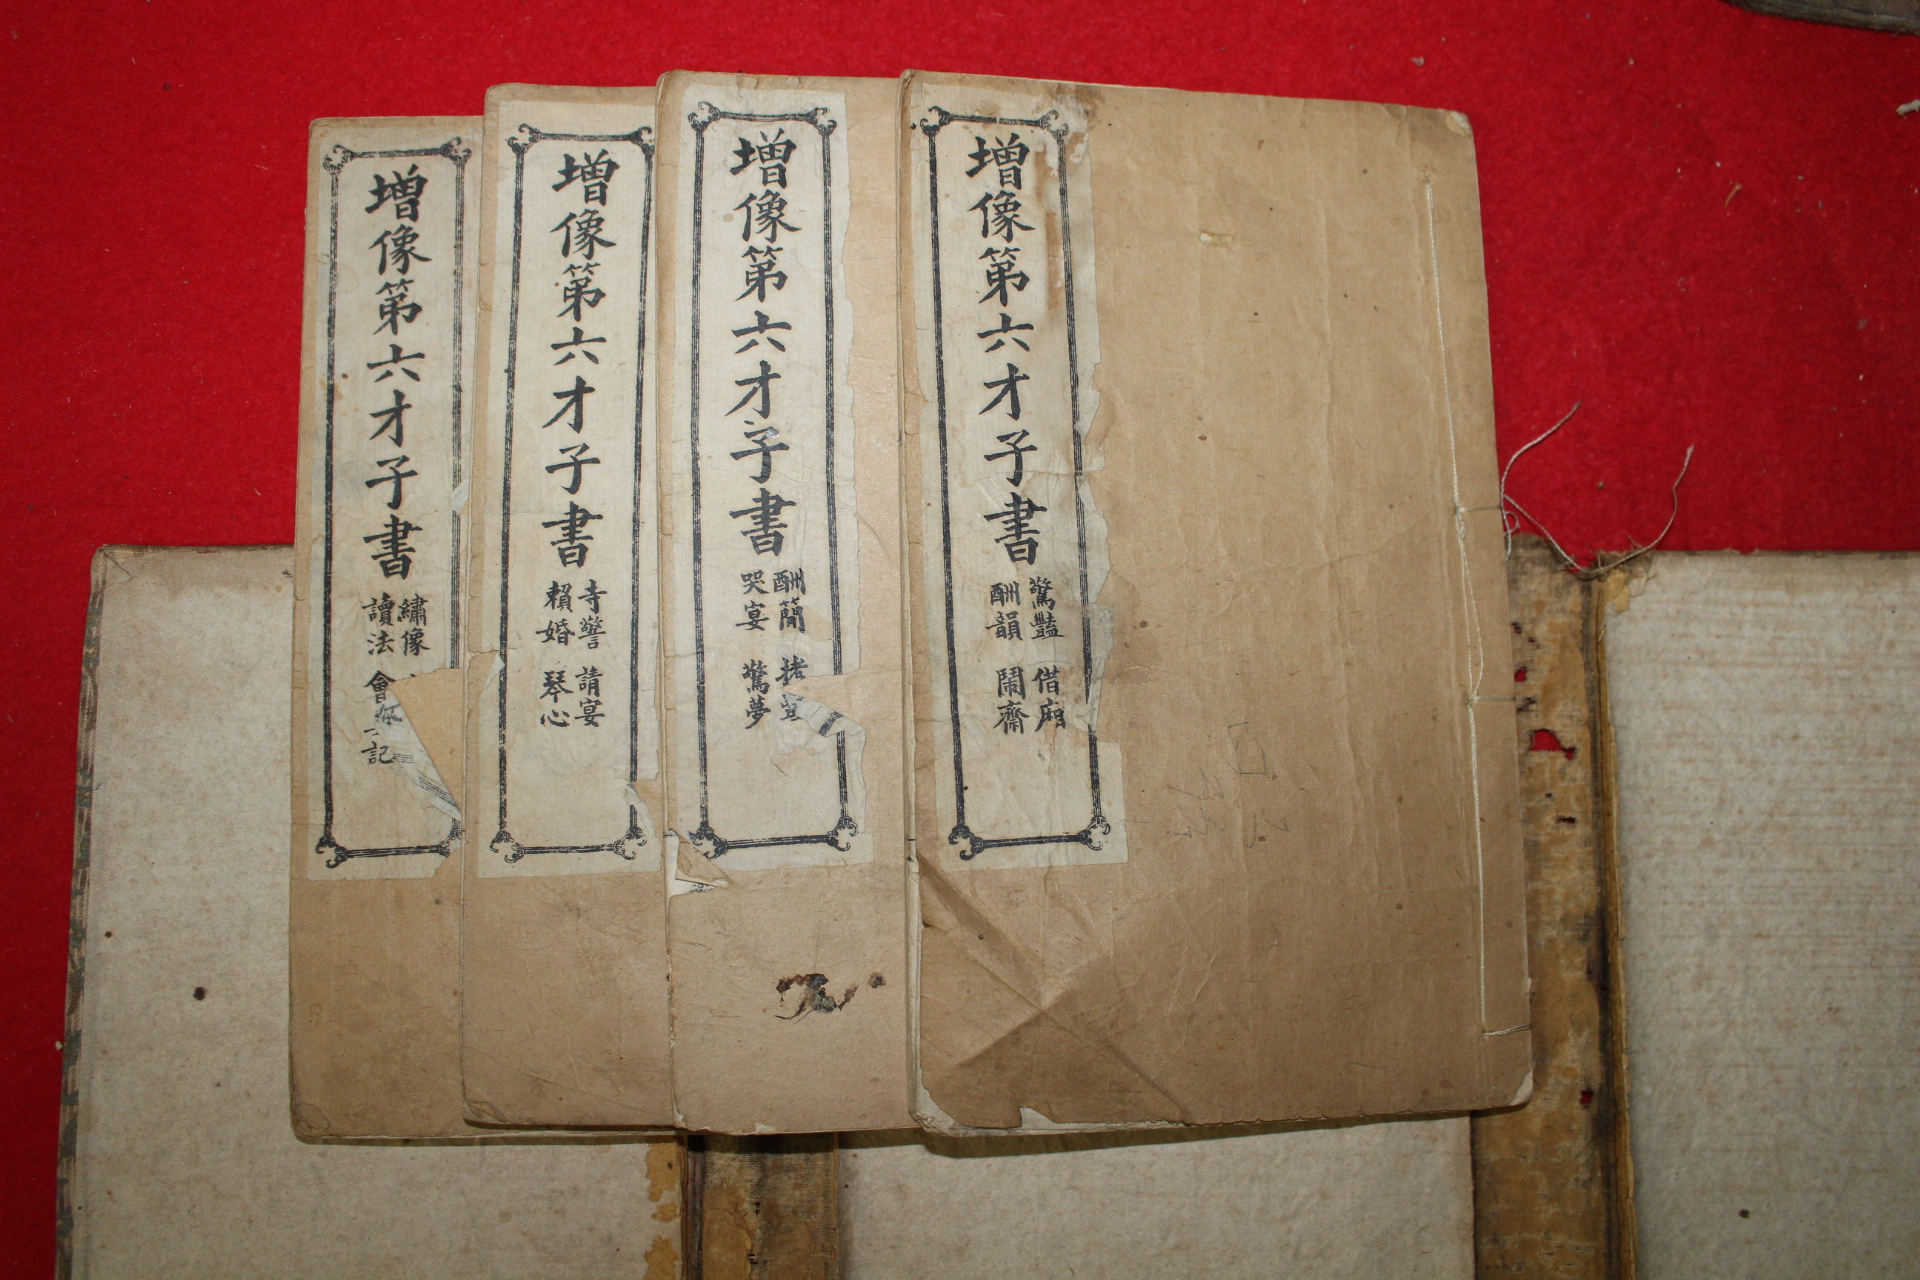 增像第六才子書
驚豔 借廂
酬韻 鬧齋
增像第六才子書
酬簡 拷
哭宴 驚夢
增像第六才子書
寺警 請宴
賴婚 琴心
增像第六才子書
繡像
讀法 會 記